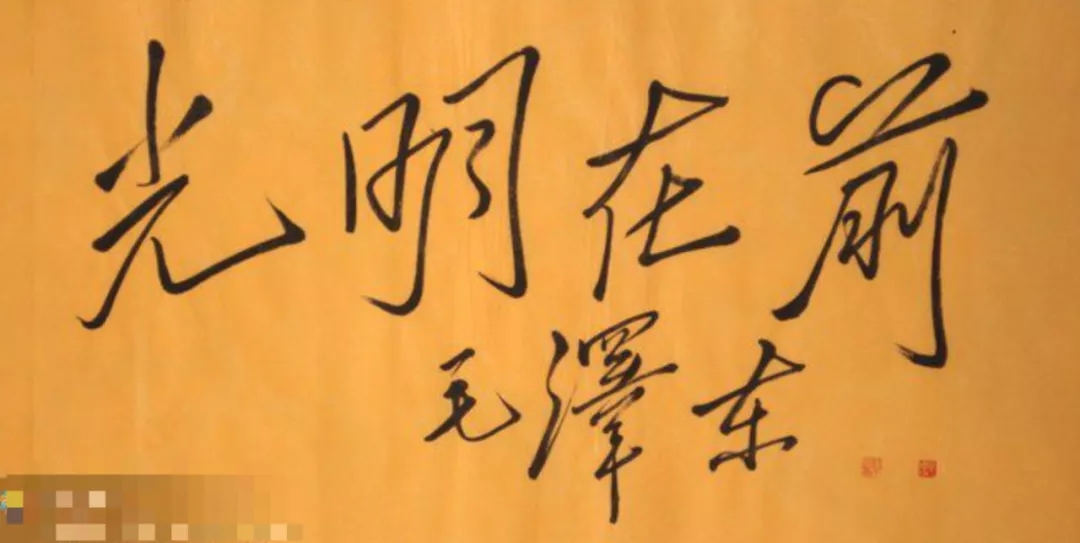 光明在前
毛澤东